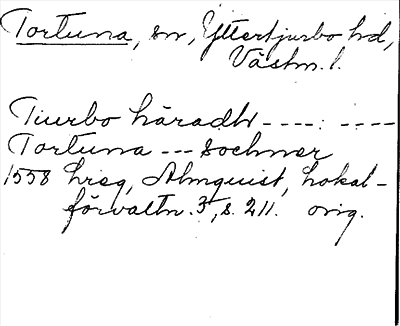 Tortuna, sn, Yttertjurbo hd,
Västm. l.
Tiurbo häradh ----: ----
Tortuna --- sochner
1558 hrsg, Almquist, Lokal-
förvaltn. 3, s. 211. orig.